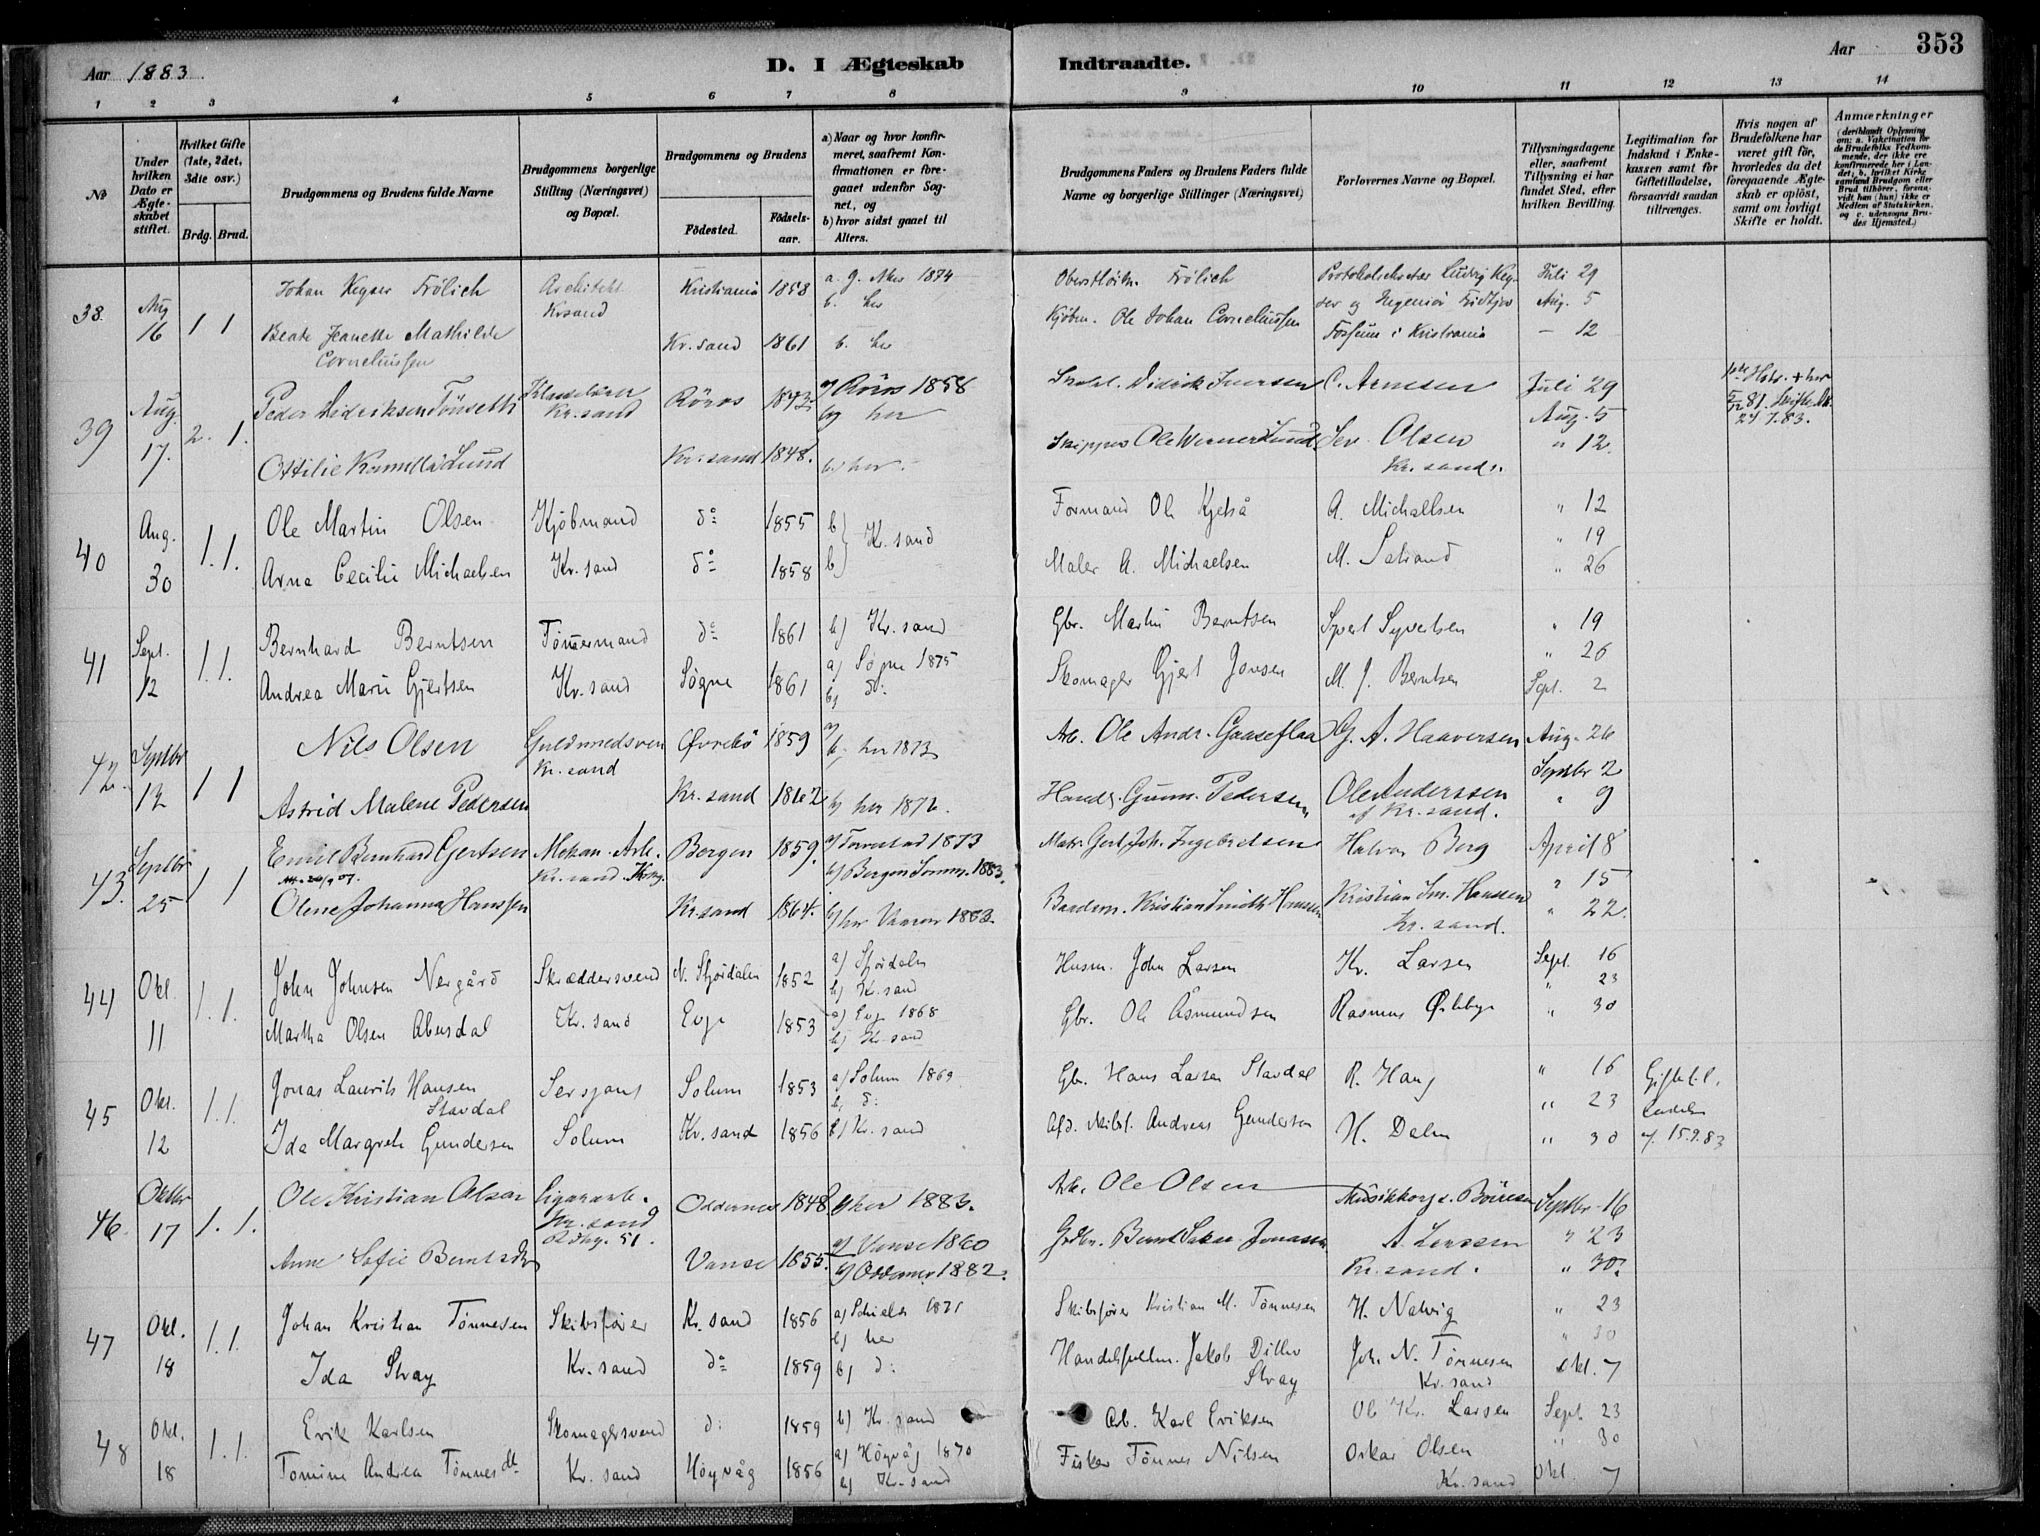 Aar 1883.
D. I Ægteskab
Indtraadte.
Aar
353
1 2 3 4 5 6 7 8 9 10 11 12 13 14
No
Under hvilken Dato er Ægteskabet stiftet.
Hvilket Gifte (1ste, 2det, 3die osv.)
Brdg. Brud.
Brudgommens og Brudens fulde Navne
Brudgommens borgerlige Stilling (Næringsvei) og Bopæl.
Brudgommens og Brudens
Fødested.
Fødselsaar.
a) Naar og hvor konfirmeret, saafremt Konfirmationen er foregaaet udenfor Sognet, og
b) hvor sidst gaaet til Alters.
Brudgommens Faders og Brudens Faders fulde Navne og borgerlige Stillinger (Næringsvei)
Forlovernes Navne og Bopæl.
Tillysningsdagene eller, saafremt Tillysning ei har fundet Sted, efter hvilken Bevilling.
Legitimation for Indskud i Enkekassen samt for Giftetilladelse, forsaavidt saadan tiltrænges.
Hvis nogen af Brudefolkene har været gift før, hvorledes da det foregaaende Ægteskab er opløst, samt om lovligt Skifte er holdt.
Anmærkninger
(deriblandt Oplysning om: a. Vakcination for de Brudefolks Vedkommende, der ikke ere konfirmerede her i Landet; b. hvilket Kirkesamfund Brudgom eller Brud tilhører, forsaavidt han (hun) ikke er Medlem af Statskirken, og c. udensogns Brudes Hjemsted.)
38. Aug 16 1 1 Johan Keyser Frölich Architekt Krsand Kristiania 1858 a. 1874 b. her
Oberstløitn. Frölich Ludvig Keyser og Ingeniör Juli 29 Aug. 5
Beate Jeanette Mathilde Corneliussen Kr.sand 1861 b. her
Kjøbm. Ole Johan Corneliussen Fossum i Kristiania – 12
39 Aug. 17. 2. 1. Peder Dideriksen Tönseth Kr.sand Röros 1843 a) Röros 1858 b) her
Didrik Iversen C. Arnesen Juli 29 Aug. 5
Ottilie Kamilla Lund Kr.sand 1848. b. her.
Skipper Ole Werner Lund. Sev. Olsen Kr.sand. " 12.
40 Aug. 30 1. 1. Ole Martin Olsen Kjöbmand do 1855 b) Kr.sand
Formand Ole Kjetså A. Michaelsen " 12 " 19
Anna Cecilie Michaelsen Kr.sand do 1858 b)
Maler A. Michaelsen M. Salvand " 26
41 Sept. 12 1. 1. Bernhard Berntsen Tömmermand do 1861 b) Kr.sand
Gbr. Martin Berntsen Syvert Syvertsen " 19 " 26
Andrea Marie Gjertsen Kr.sand Søgne 1861 a) Søgne 1875 b) do
Skomager Gjert Jonsen M. J. Berntsen Sept. 2
42. Septbr 12 1 1 Nils Olsen Guldsmedsven Kr.sand Øvrebö 1859 a) b) her 1873
Arb. Ole Andr. Gaaseflaa G. A. Haaversen Aug. 26 Septbr 2
Astrid Malene Pedersen Kr.sand 1862 b) her 1872.
Handl. Gunn. Pedersen Ole Anderssen af Kr.sand. " 9
43. Septbr 25 1 1 Emil Bernhard Gjertsen Mekan. Arb. Kr.sand Bergen 1859. a) 1873 b) Bergen Somm. 1883.
Matr. Gert Joh. Ingebretsen Halvor Berg April 8 " 15
Olene Johanna Hanssen Kr.sand 1864. b) her Vaaren 1883
Kristian Smith Hanssen Kristian Sm. Hanssen Kr.sand. " 22.
44 Okt. 11 1. 1. John Johnsen Nergård Skræddersvend N. Stjørdalen 1852 a) Stjørdalen b) Kr.sand
Husm. John Larsen Kr. Larsen Sept. 16 " 23
Martha Olsen Abusdal Kr.sand Evje 1853 a) Evje 1868 b) Kr.sand
Gbr. Ole Åsmundsen Rasmus " 30
45 Okt. 12 1. 1. Jonas Laurits Hansen Stavdal Sersjant Solum 1853 a) Solum 1869 b) do
Gbr. Hans Larsen Stavdal R. Haug " 16 " 23 Giftetil.
Ida Margrete Gundersen Solum Kr.sand 1856 b) Kr.sand
Afd. Andreas Gundersen H. Dalm " 30 af 15.9.83
46. Oktbr 17 1. 1. Ole Kristian Olsen Cigararb. Kr.sand Oddernes 1848 b) her 1883.
Arb. Ole Olsen Septbr 16
Anne Sofie Berntsdtr Vanse 1855. a) Vanse 1860 b) Oddernes 1882.
Jonassen A. Larssen Kr.sand. " 23 " 30.
47 Okt. 18 1. 1. Johan Kristian Tønnesen Skibsfører Kr.sand 1856 a) 1871 b) her
Skibsfører Kristian M. Tønnesen H. Natvig " 23 " 30
Ida Stray Kr.sand do 1859 b) do
Jakob Ditlev Stray Joh. N. Tønnesen Kr.sand Okt. 7
48 Okt. 18 1. 1. Erik Karlsen Skomagersvend do 1859 b) Kr.sand
Arb. Karl Eriksen Ole Kr. Larsen Sept. 23 " 30
Tomine Andrea Tønnesdt. Kr.sand Høyvåg 1856 a) Høyvåg 1870 b) Kr.sand
Fisker Tønnes Nilsen Oskar Olsen Kr.sand Okt. 7